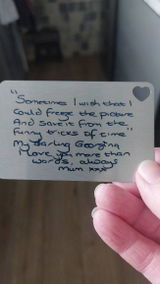 "Sometimes I wish that I
Could freeze the picture
And save it from the
funny tricks of time"
My darling Georgina
I love you more than
words, always
Mum xxx